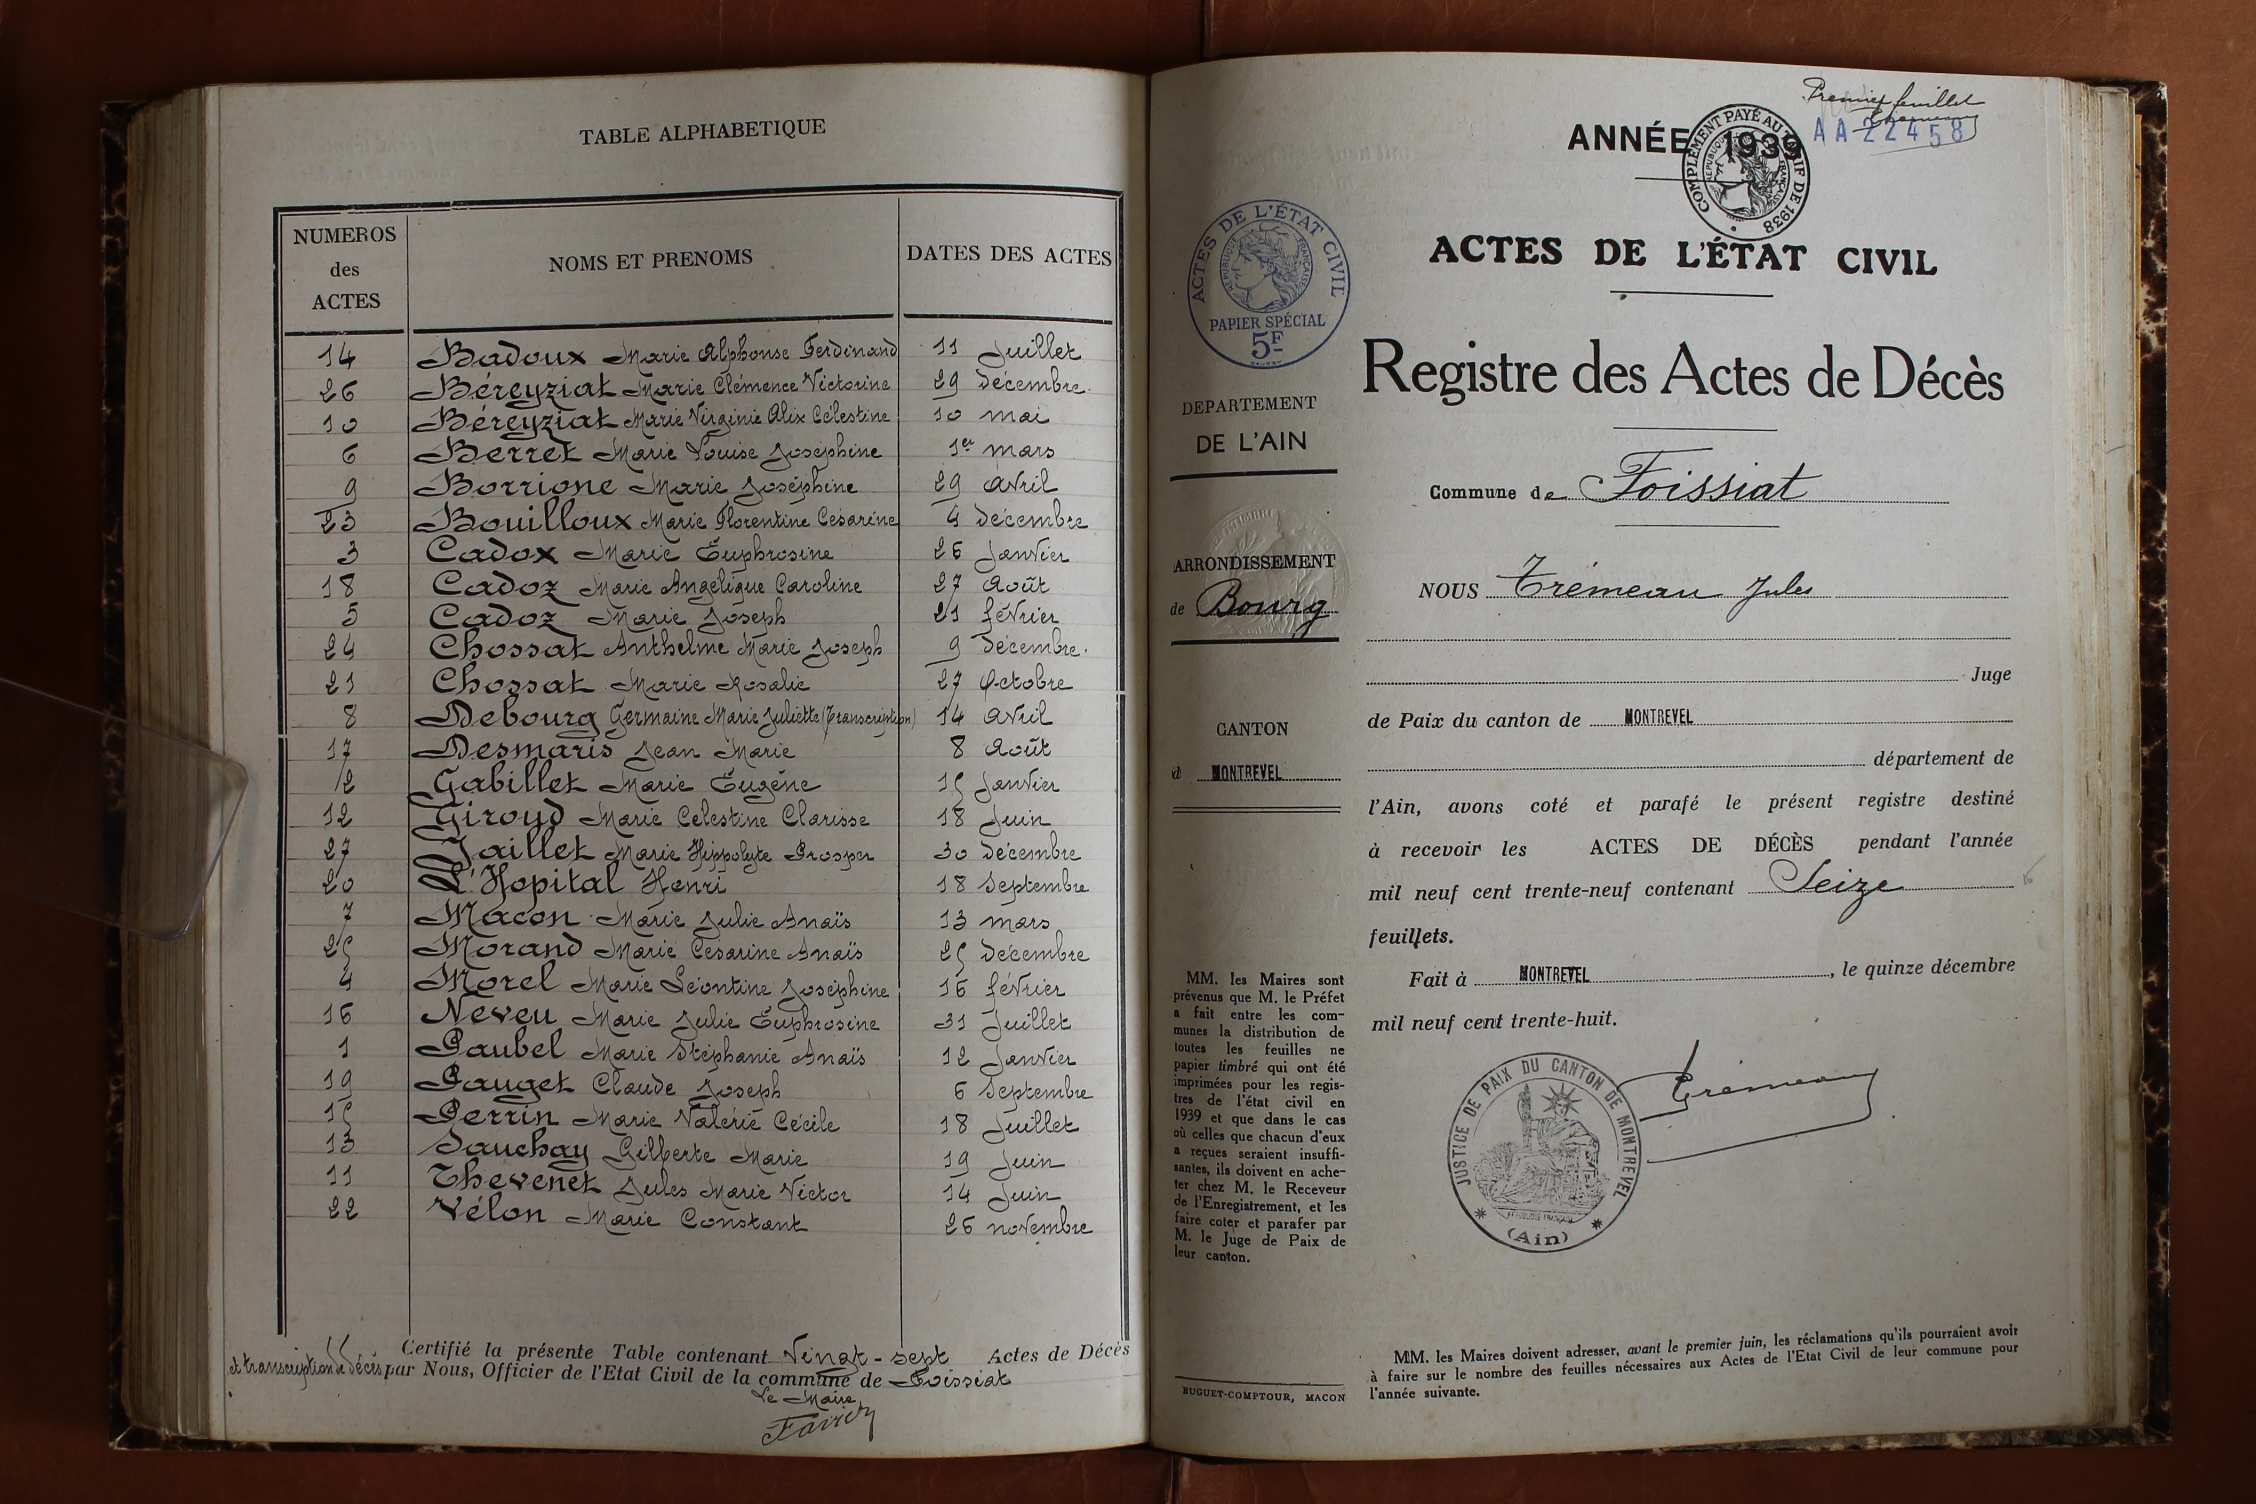 TABLE ALPHABETIQUE
NUMEROS des ACTES NOMS ET PRENOMS DATES DES ACTES
14 Badoux Marie Alphonse Ferdinand 11 Juillet
26 Béreyziat Marie Clémence Victorine 29 décembre
10 Béreyziat Marie Virginie Alix Célestine 10 mai
6 Berret Marie Louise Joséphine 1er mars
9 Borrione Marie Joséphine 29 Avril
23 Bouilloux Marie Florentine Césarine 4 décembre
3 Cadox Marie Euphrosine 26 Janvier
18 Cadoz Marie Angélique Caroline 27 Août
5 Cadoz Marie Joseph 21 février
24 Chossat Anthelme Marie Joseph 9 décembre.
21 Chossat Marie Rosalie 27 Octobre
8 Debourg Germaine Marie Juliette (Transcription) 14 Avril
17 Desmaris Jean Marie 8 Août
2 Gabillet Marie Eugène 15 Janvier
12 Giroud Marie Célestine Clarisse 18 Juin
27 Jaillet Marie Hippolyte Prosper 30 décembre
20 L'Hopital Henri 18 Septembre
7 Macon Marie Julie Anaïs 13 mars
25 Morand Marie Césarine Anaïs 25 décembre
4 Morel Marie Léontine Joséphine 16 février
16 Neveu Marie Julie Euphrosine 31 Juillet
1 Paubel Marie Stéphanie Anaïs 12 Janvier
19 Pauget Claude Joseph 6 Septembre
15 Perrin Marie Valérie Cécile 18 Juillet
13 Sauchay Gilberte Marie 19 Juin
11 Thevenet Jules Marie Victor 14 Juin
22 Vélon Marie Constant 26 novembre
Certifié la présente Table contenant Vingt-sept Actes de Décès
et transcription de décès par Nous, Officier de l'Etat Civil de la commune de Foissiat
Le Maire
Premier feuillet
Trémeau
AA 22458
ANNÉE 1939
COMPLÉMENT PAYÉ AU TARIF DE 1938
RÉPUBLIQUE FRANÇAISE
ACTES DE L'ÉTAT CIVIL
Registre des Actes de Décès
Commune de Foissiat
NOUS Trémeau Jules
Juge
de Paix du canton de MONTREVEL
département de
l'Ain, avons coté et parafé le présent registre destiné
à recevoir les ACTES DE DÉCÈS pendant l'année
mil neuf cent trente-neuf contenant Seize
feuillets.
Fait à MONTREVEL, le quinze décembre
mil neuf cent trente-huit.
Trémeau
JUSTICE DE PAIX DU CANTON DE MONTREVEL
(Ain)
ACTES DE L'ÉTAT CIVIL
RÉPUBLIQUE FRANÇAISE
PAPIER SPÉCIAL
5F
DEPARTEMENT
DE L'AIN
ARRONDISSEMENT
de Bourg
CANTON
d MONTREVEL
MM. les Maires sont
prévenus que M. le Préfet
a fait entre les com-
munes la distribution de
toutes les feuilles ne
papier timbré qui ont été
imprimées pour les regis-
tres de l'état civil en
1939 et que dans le cas
où celles que chacun d'eux
a reçues seraient insuffi-
santes, ils doivent en ache-
ter chez M. le Receveur
de l'Enregistrement, et les
faire coter et parafer par
M. le Juge de Paix de
leur canton.
BUGUET-COMPTOUR, MACON
MM. les Maires doivent adresser, avant le premier juin, les réclamations qu'ils pourraient avoir
à faire sur le nombre des feuilles nécessaires aux Actes de l'Etat Civil de leur commune pour
l'année suivante.